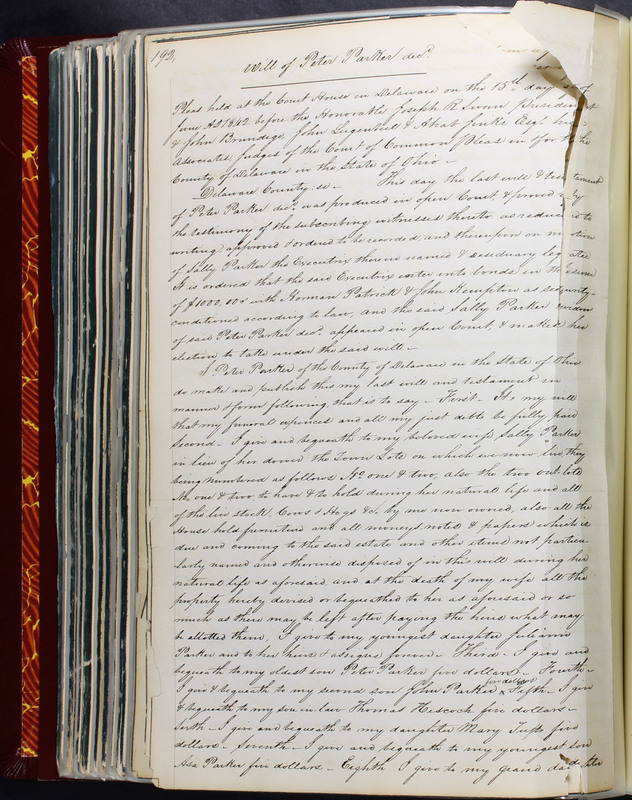 192,
Will of Peter Parker decd.
Pleas held at the Court House in Delaware on the 15th day of
June AD 1842 before the Honorable Joseph R. Swan President
& John Brundige, John Lugenbeel & Ahab Jinks Esqs his
Associates, Judges of the Court of Common Pleas in & for the
County of Delaware in the State of Ohio -
Delaware County ss - This day the last will & testament
of Peter Parker decd. was produced in open Court, & proved by
the testimony of the subscribing witnesses thereto as reduced to
writing approved & ordered to be recorded, and thereupon on motion
of Sally Parker the Executrix therein named & residuary legatee
It is ordered that the said Executrix enter into bonds in the sum
of $1000,00 with Horman Patrick & John Kempton as security -
conditioned according to law, and the said Sally Parker widow
of said Peter Parker decd. appeared in open Court, & makes her
election to take under the said will -
I Peter Parker of the County of Delaware in the State of Ohio
do make and publish this my last will and testament in
manner & form following, that is to say - First - It is my will
that my funeral expences and all my just debts be fully paid
Second - I give and bequeath to my beloved wife Sally Parker
in lieu of her dower the Town Lots on which we now live, they
being numbered as follows No. one & two, also the two out lots
No, one & two, to have & to hold during her natural life and all
of the live stock, Cows & Hogs &c. by me now owned, also all the
House hold furniture and all moneys, notes & papers which is
due and coming to the said estate and other items not particu-
larly named and otherwise disposed of in this will during her
natural life as aforesaid and at the death of my wife all the
property hereby devised or bequeathed to her as aforesaid or so
much as there may be left after paying the heirs what may
be allotted them, I give to my youngest daughter Juliann
Parker and to her heirs & assigns forever - Third - I give and
bequeath to my oldest son Peter Parker five dollars - Fourth -
I give & bequeath to my second son John Parker five dollars & Fifth - I give
& bequeath to my son in law Thomas Hiscock five dollars -
Sixth - I give and bequeath to my daughter Mary Tufts five
dollars - Seventh - I give and bequeath to my youngest son
Asa Parker five dollars - Eighth I give to my grand daughter